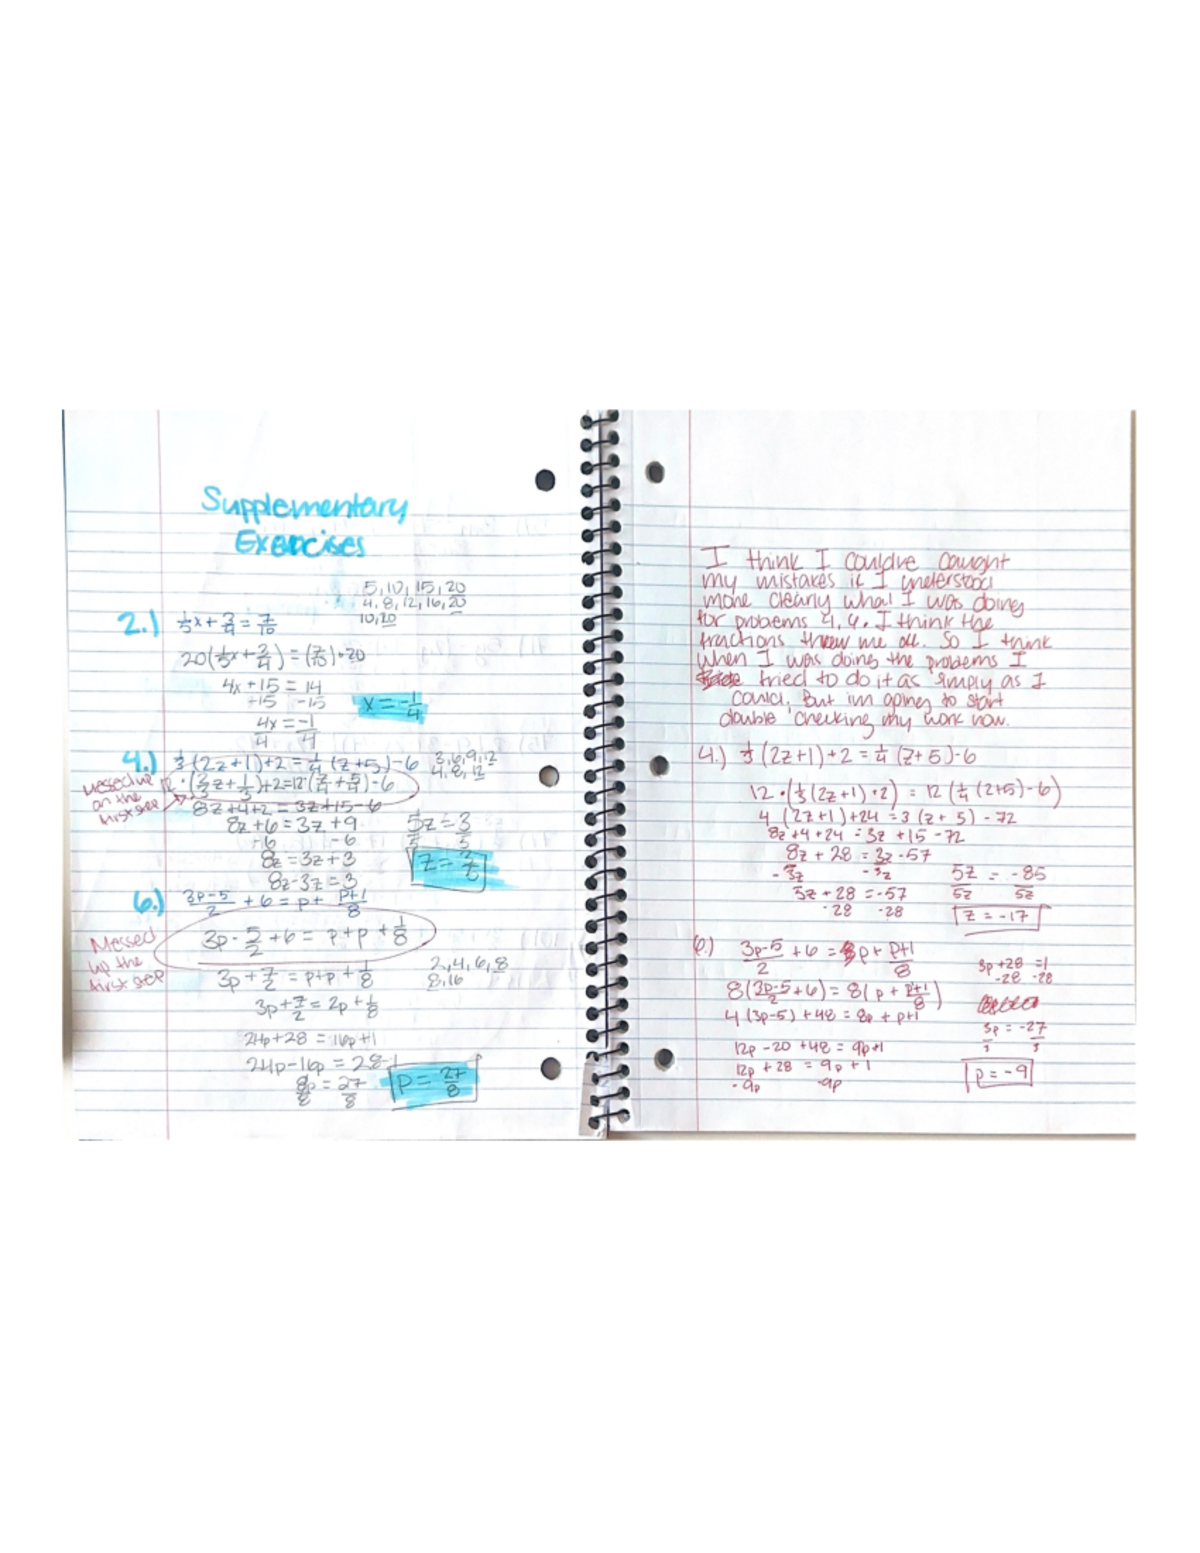 Supplementary
Exercises
5, 10, 15, 20
4, 8, 12, 16, 20
10, 20
2.) 1/5x + 3/4 = 7/10
20(1/5x + 3/4) = (7/10)•20
4x + 15 = 14
+15 -15
x = -1/4
4x = -1
4 4
4.) 1/3 (2z+1)+2 = 1/4 (z+5)-6
3, 6, 9, 12
4, 8, 12
12 • (2/3z + 1/3)+2=12•(z/4 + 5/4)-6
on the
first step
8z+4+2 = 3z+15-6
8z+6 = 3z+9
-6 -6
8z = 3z+3
8z-3z = 3
5z = 3
5 5
6.) 3p-5/2 + 6 = p + p+1/8
Messed
up the
first step
3p - 5/2 + 6 = p+p + 1/8
2, 4, 6, 8
8, 16
3p + 7/2 = p+p + 1/8
3p + 7/2 = 2p + 1/8
24p+28 = 16p+1
24p-16p = 28-1
8p = 27
8 8
p = 27/8
I think I could've caught
my mistakes if I understood
more clearly what I was doing
for problems 4, 6. I think the
fractions threw me off. So I think
when I was doing the problems I
tried to do it as simply as I
could, But im going to start
double checking my work now.
4.) 1/3 (2z+1)+2 = 1/4 (z+5)-6
12•(1/3(2z+1)•2) = 12(1/4(z+5)-6)
4 (2z+1)+24 = 3(z+5)-72
8z+4+24 = 3z+15-72
8z + 28 = 3z-57
-3z -3z
5z + 28 = -57
-28 -28
5z = -85
5z 5z
z = -17
6.) 3p-5/2 + 6 = p + p+1/8
8(3p-5/2+6) = 8(p + p+1/8)
4(3p-5)+48 = 8p + p+1
12p-20+48 = 9p+1
12p + 28 = 9p + 1
-9p -9p
3p+28 = 1
-28 -28
3p = -27
3 3
p = -9